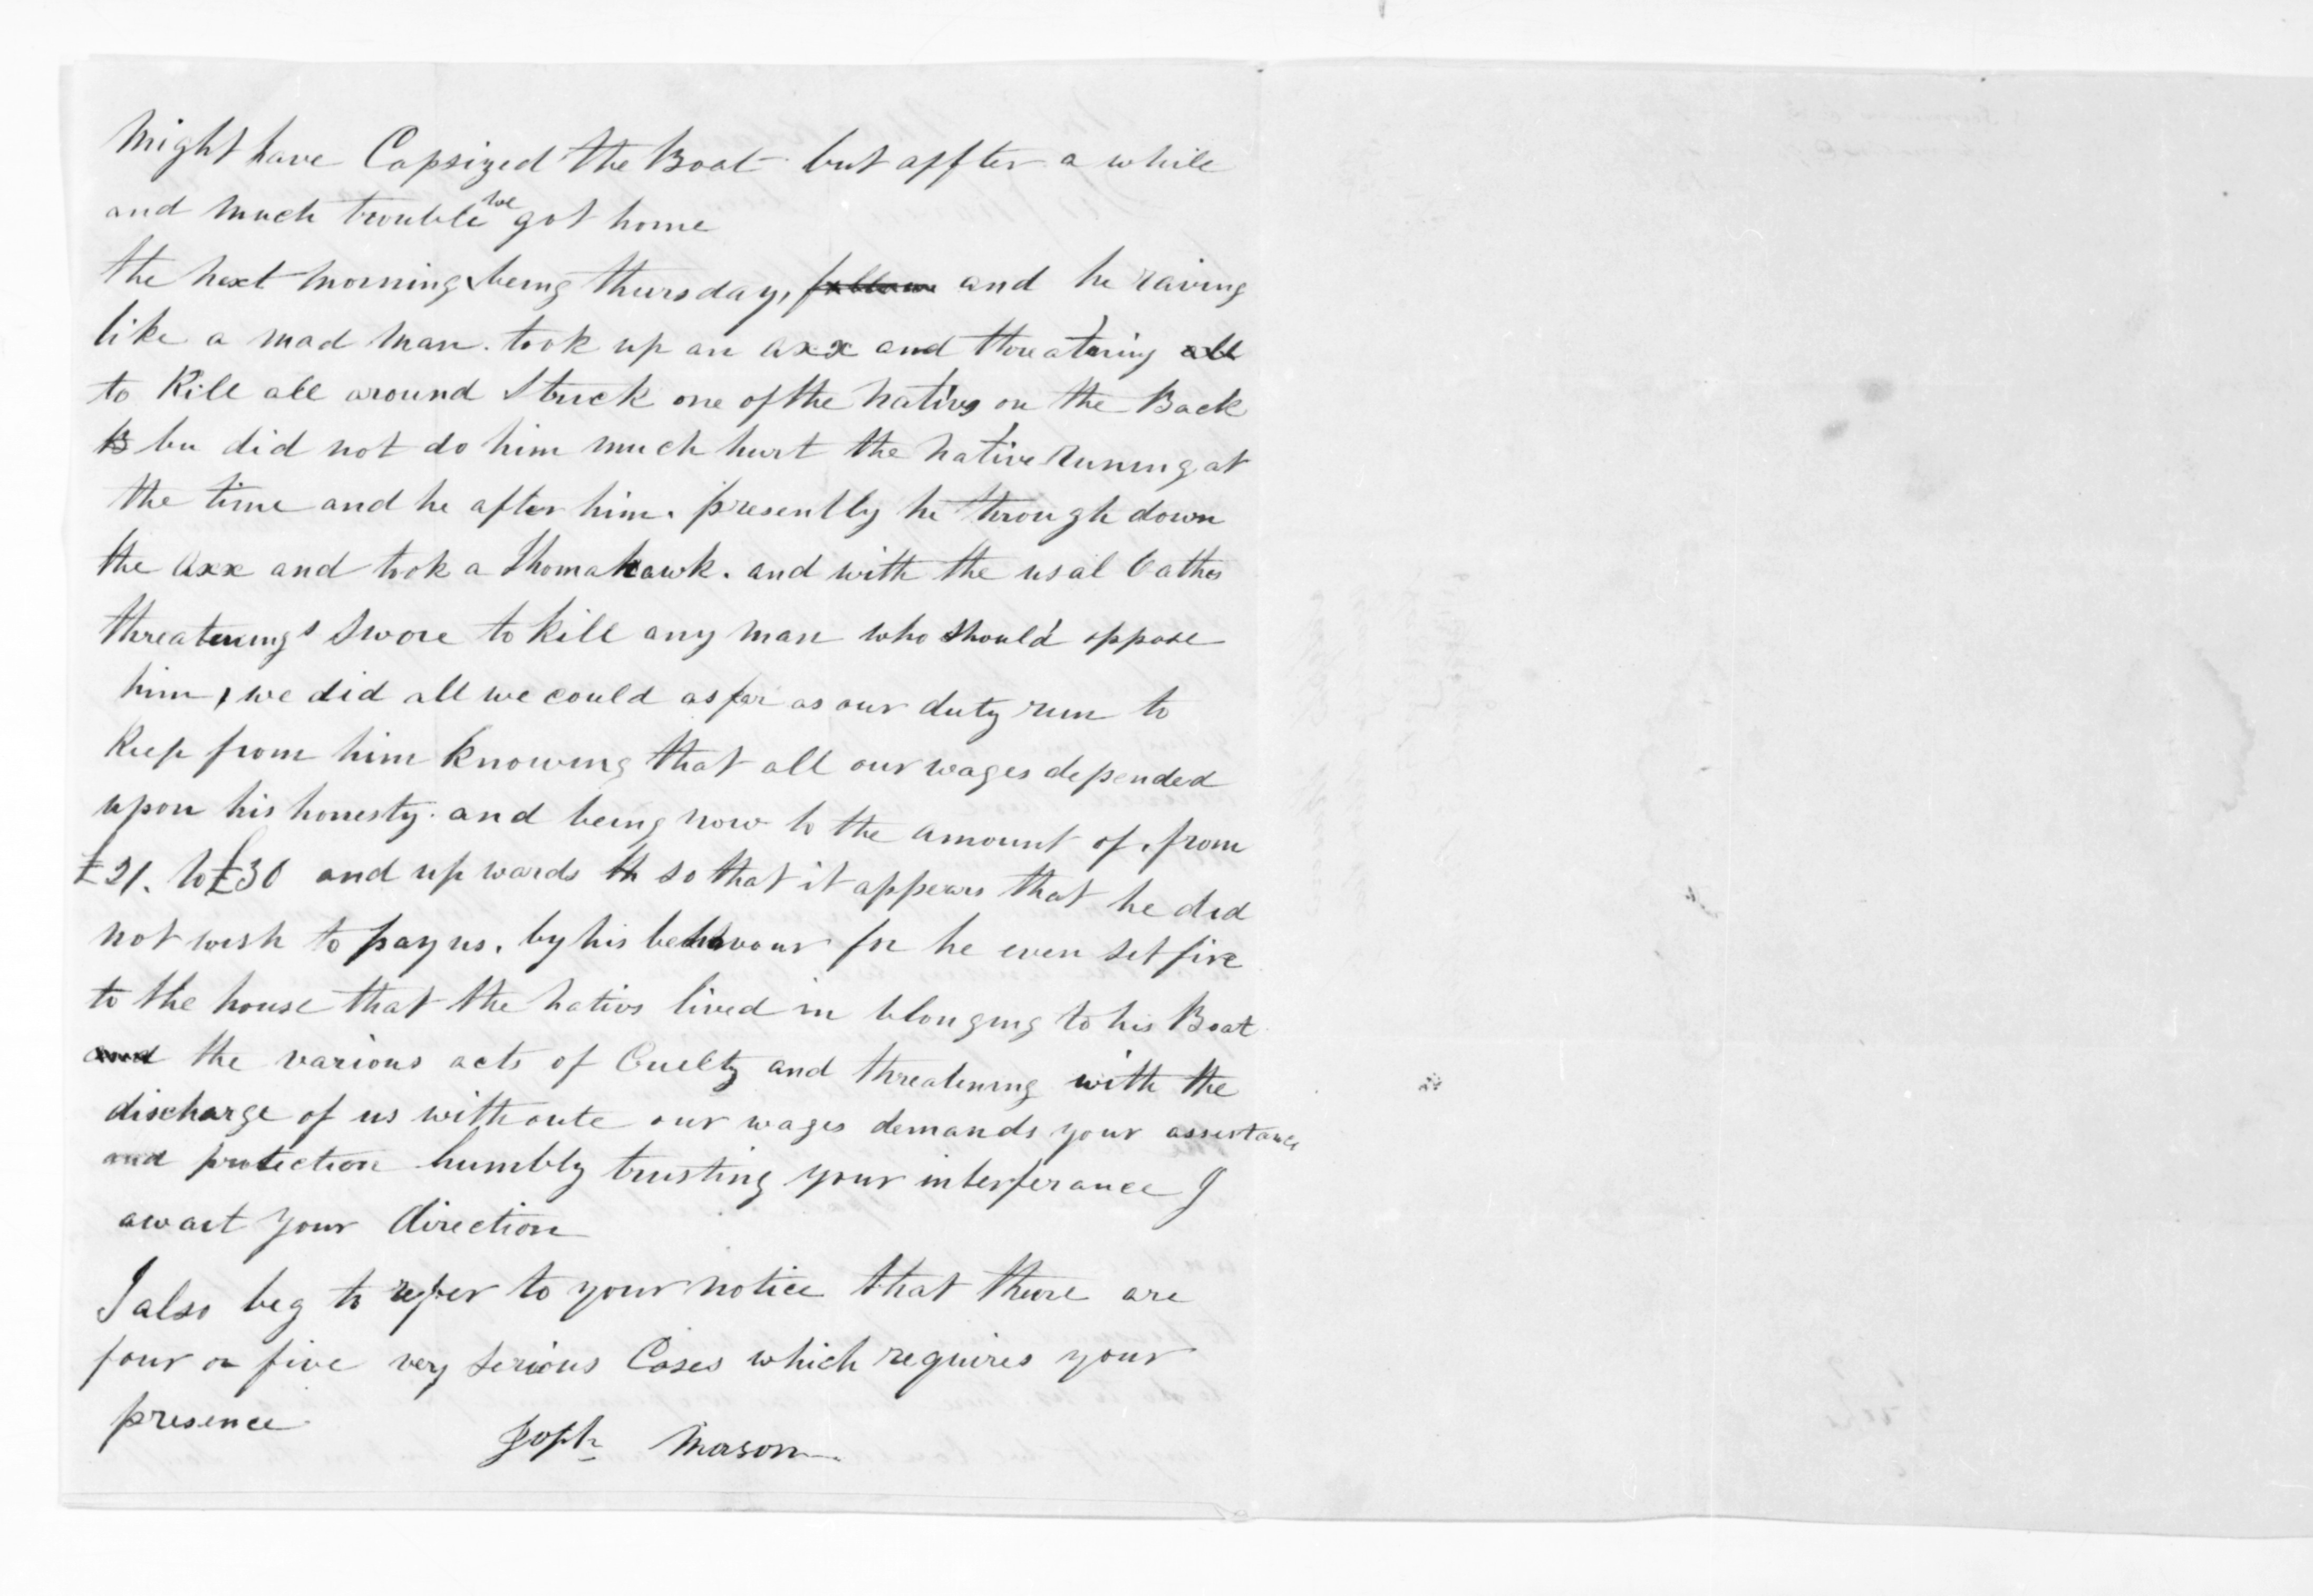 Might have Capsized the Boat but affter a while
and Much trouble we got home
the next Morning being thursday, and he raving
like a mad Man. took up an axx and threatning all
to Kill all around Struck one of the Nativs on the Back
B bu did not do him much hurt the Native Runing at
the time and he after him. presently he through down
the axx and took a Thomahawk. and with the usal Oathes
threatenings Swore to Kill any man who should oppose
him, we did all we could as far as our duty run to
Keep from him Knowing that all our wages depended
upon his honesty. and being now to the amount of. from
£21. to £30 and up wards th so that it appears that he did
not wish to pay us. by his behavour for he even set fire
to the house that the Nativs lived in blonging to his Boat
and the various acts of Cruelty and threatening with the
discharge of us withoute our wages demands your assistance
and protection humbly trusting your interferance I
await your direction
I also beg to refer to your notice that there are
four or five very Serious Cases which requires your
presence
Josph Mason